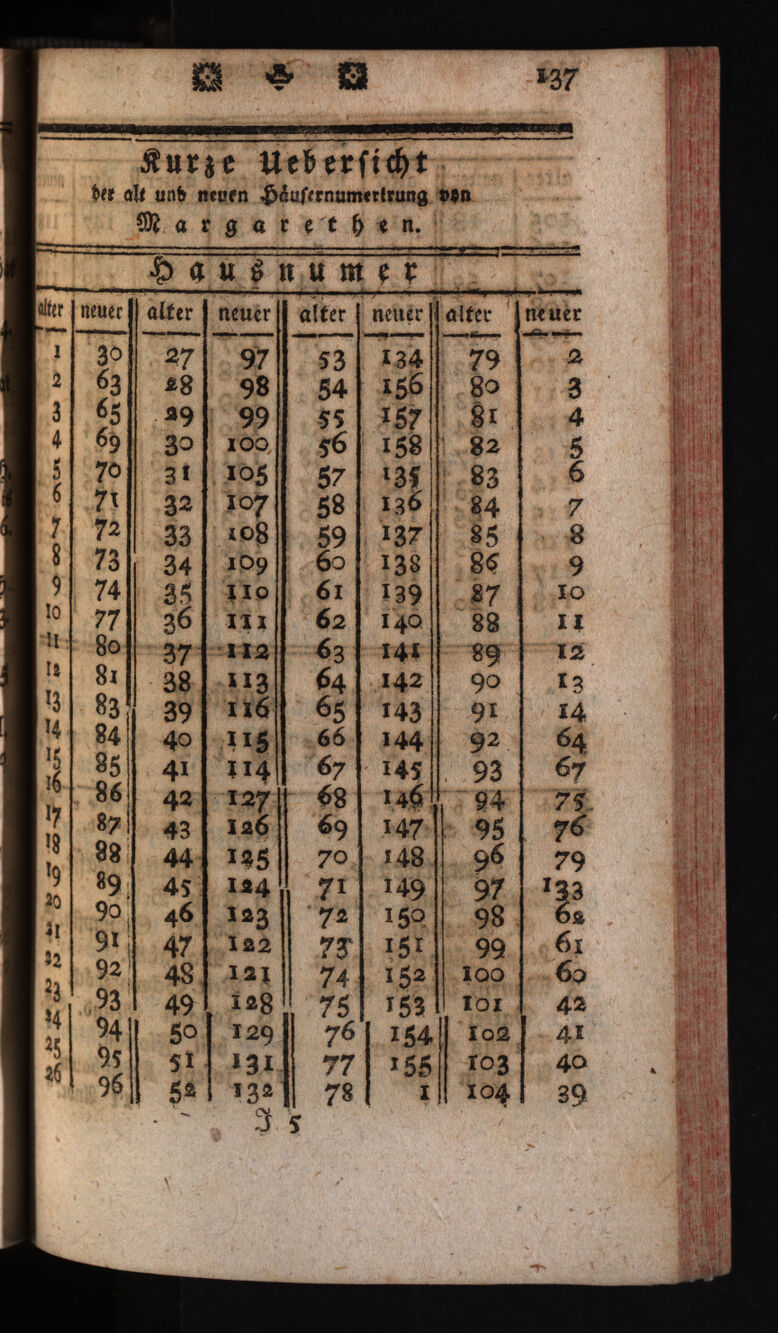 137
Kurze Uebersicht
der alt und neuen Häusernumerirung von
Margarethen.
Hausnumer
alter neuer alter neuer alter neuer alter neuer
1 30 27 97 53 134 79 2
2 63 28 98 54 156 80 3
3 65 29 99 55 157 81 4
4 69 30 100 56 158 82 5
5 70 31 105 57 135 83 6
6 71 32 107 58 136 84 7
7 72 33 108 59 137 85 8
8 73 34 109 60 138 86 9
9 74 35 110 61 139 87 10
10 77 36 111 62 140 88 11
11 80 37 112 63 141 89 12
12 81 38 113 64 142 90 13
13 83 39 116 65 143 91 14
14 84 40 115 66 144 92 64
15 85 41 114 67 145 93 67
16 86 42 127 68 146 94 75
17 87 43 126 69 147 95 76
18 88 44 125 70 148 96 79
19 89 45 124 71 149 97 133
20 90 46 123 72 150 98 62
21 91 47 122 73 151 99 61
22 92 48 121 74 152 100 60
23 93 49 128 75 153 101 42
24 94 50 129 76 154 102 41
25 95 51 131 77 155 103 40
26 96 52 132 78 1 104 39
J 5